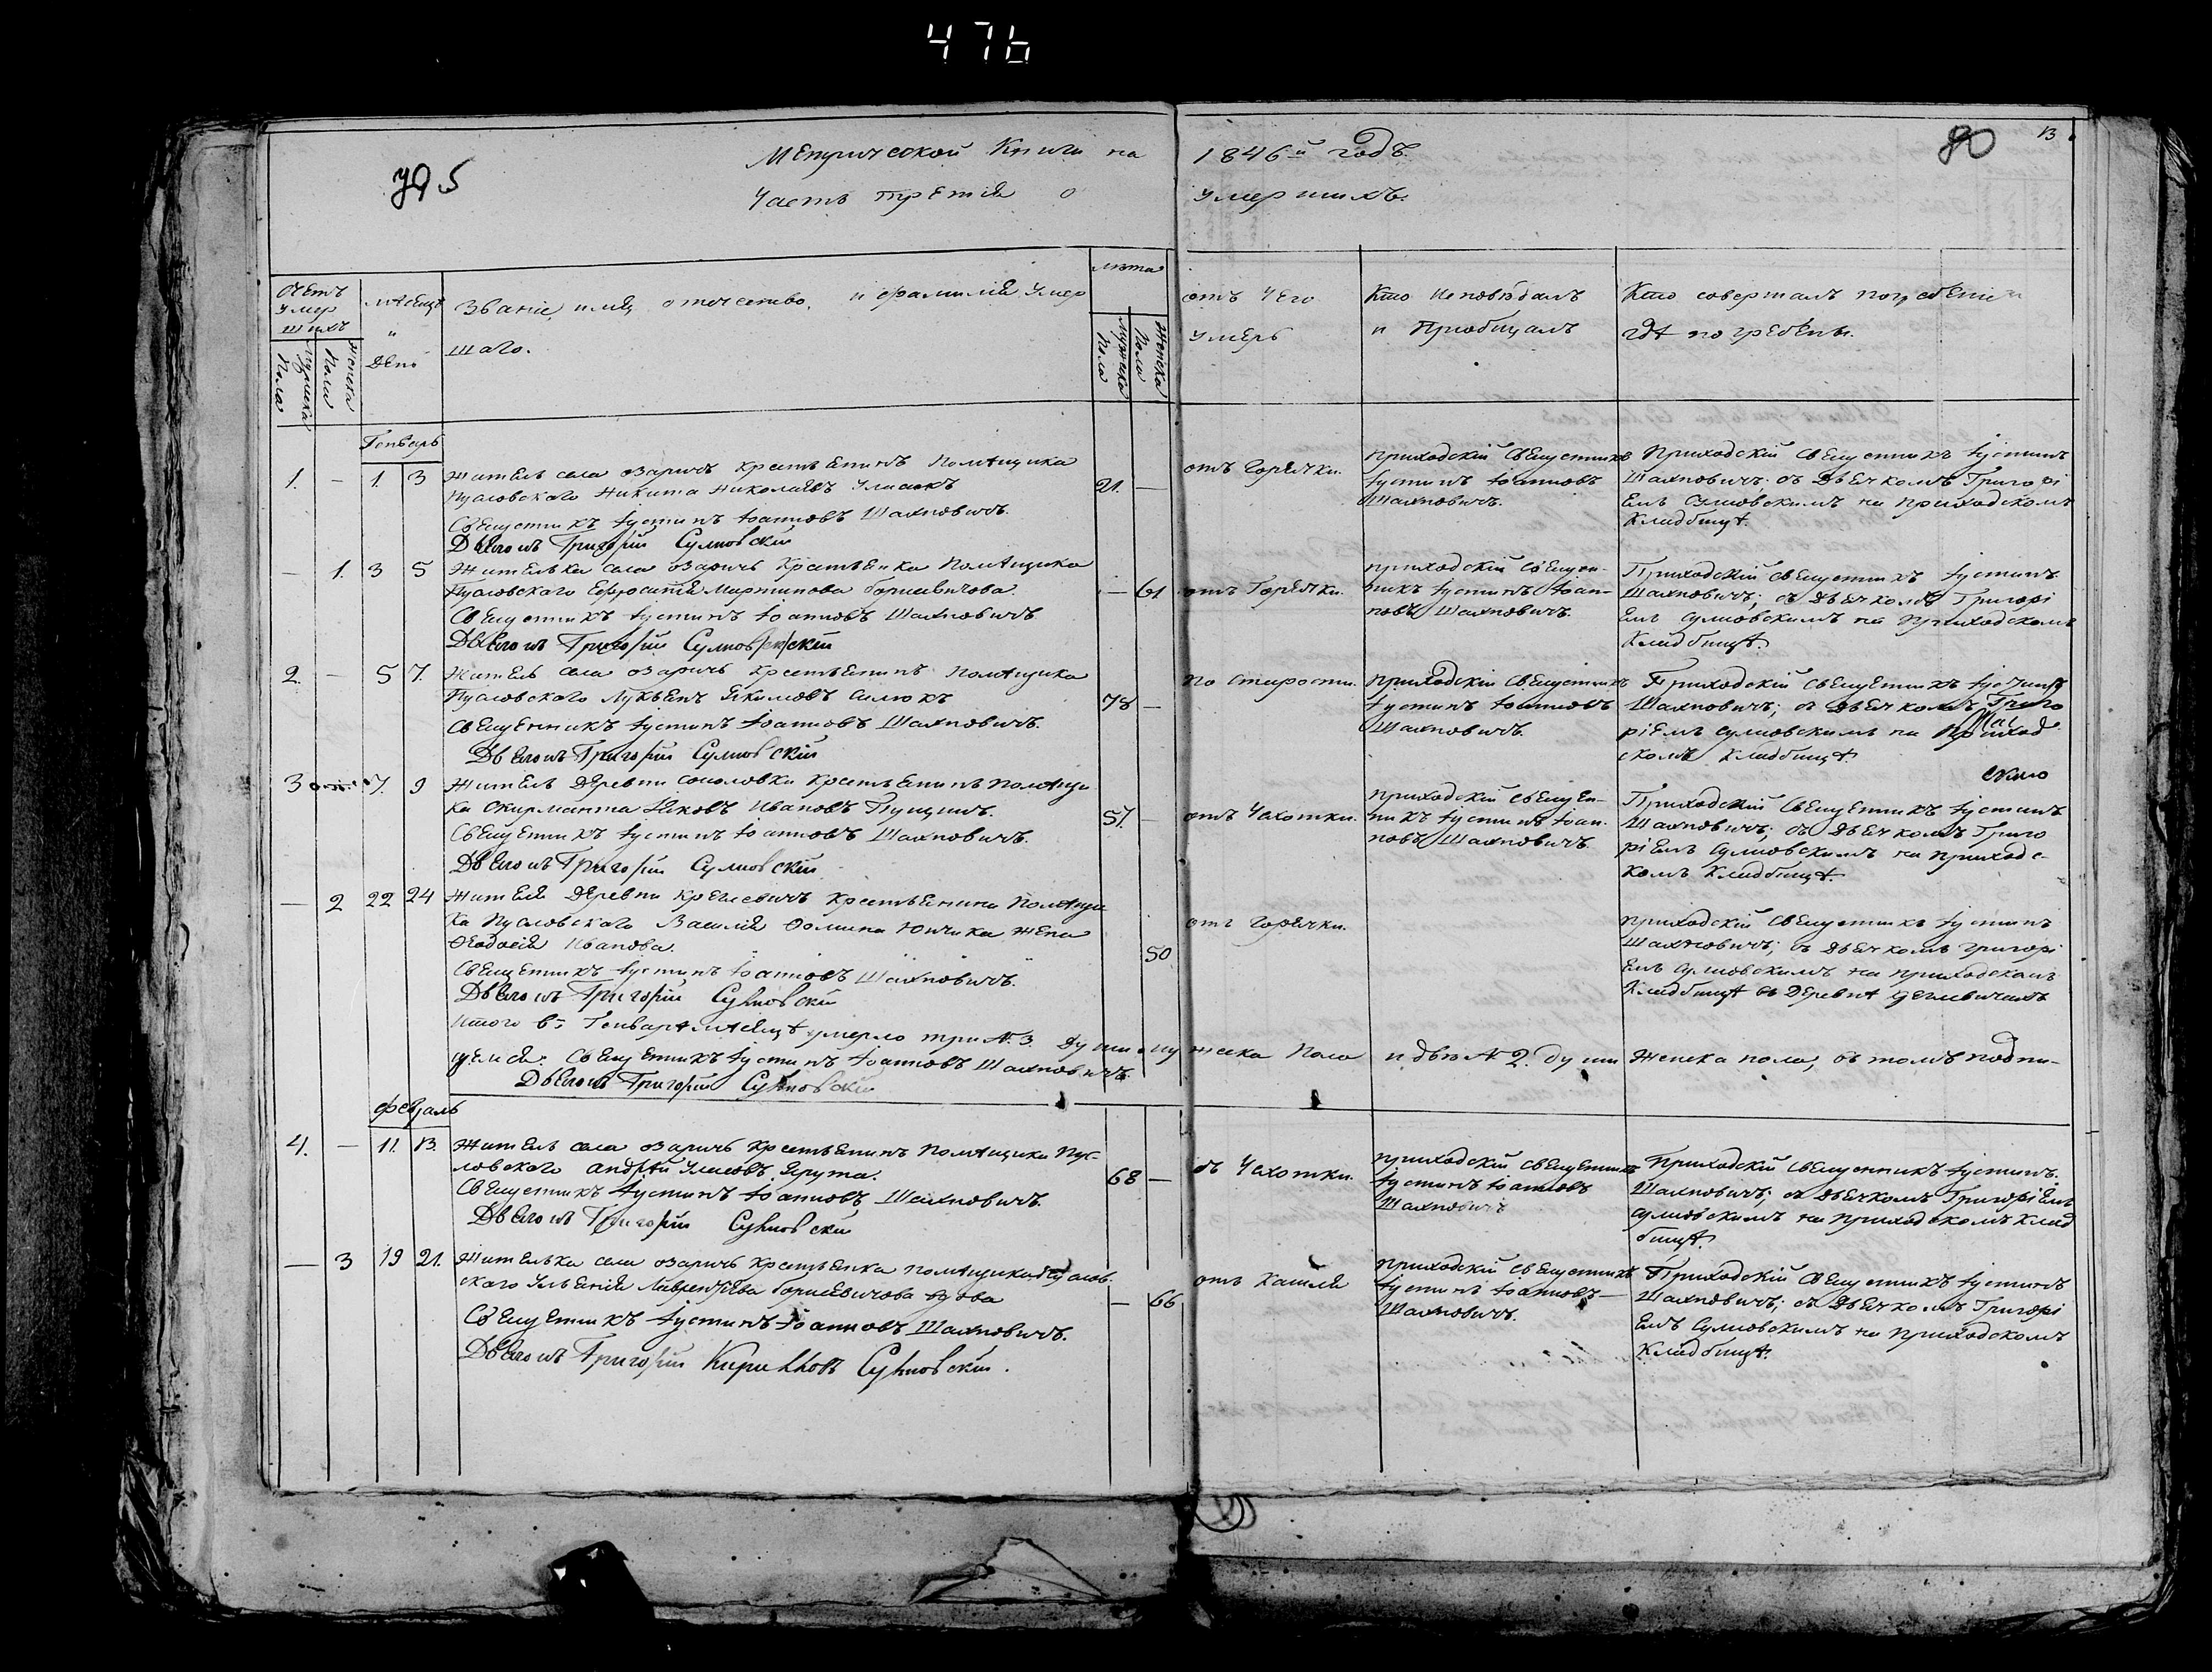 476
795
Метрической Книги на 1846й годъ.
Часть третія о умершихъ.
80
13
Счетъ умершихъ
Мужеска Пола
Женска Пола
Мѣсецъ и День
Званіе, имя, отечество, и фамилія Умершаго.
лѣта
Мужеска Пола
Женска Пола
отъ Чего умеръ
Кто Исповѣдалъ и Пріобщалъ
Кто совершалъ погребеніе и гдѣ погребены.
Генварь
1. — 1. 3
Житель села Озаричъ Крестьянинъ Помѣщика
Пусловскаго Никита Николаевъ
Священникъ Іустинъ Іоанновъ Шахновичъ.
Дьячокъ Григорій Сулковскій
21. —
отъ Горячки.
Приходскій Священникъ
Іустинъ Іоанновъ
Шахновичъ.
Приходскій Священникъ Іустинъ
Шахновичъ; съ Дьячкомъ Григорі
емъ Сулковскимъ на приходскомъ
Кладбищѣ.
— 1. 3 5
Жителька села Озаричъ Крестьянка Помѣщика
Пусловскаго Ефросинія Мартинова Борисевичова.
Священникъ Іустинъ Іоанновъ Шахновичъ
Дьячокъ Григорій
— 61.
отъ Горячки.
приходскій Священ-
никъ Іустинъ Іоан-
новъ Шахновичъ.
Приходскій Священникъ Іустинъ
Шахновичъ; съ Дьячкомъ Григорі
емъ Сулковскимъ на Приходскомъ
Кладбищѣ.
2. — 5 7.
Житель села Озаричъ Крестьянинъ Помѣщика
Пусловскаго Лукьянъ Якимовъ
Священникъ Іустинъ Іоанновъ Шахновичъ.
Дьячокъ Григорій Сулковскій
78 —
по старости.
Приходскій Священникъ
Іустинъ Іоанновъ
Шахновичъ.
Приходскій Священникъ Іустинъ
Шахновичъ; съ Дьячкомъ Григо
ріемъ Сулковскимъ на Приход
скомъ Кладбищѣ.
3 7. 9
Житель Деревни Соколовки Крестьянинъ Помѣщи
ка Скирманта Яковъ Ивановъ
Священникъ Іустинъ Іоанновъ Шахновичъ.
Дьячокъ Григорій Сулковскій
57. —
отъ Чахотки.
приходскій Священ-
никъ Іустинъ Іоан-
новъ Шахновичъ.
Приходскій Священникъ Іустинъ
Шахновичъ; съ Дьячкомъ Григо
ріемъ Сулковскимъ на приходс-
комъ Кладбищѣ.
— 2 22 24
Жителя Деревни Крестьянина Помѣщи
ка Пусловскаго Василія Ѳомина жена
Ѳеодосія Иванова.
Священникъ Іустинъ Іоанновъ Шахновичъ.
Дьячокъ Григорій Сулковскій
50
отъ Горячки.
приходскій Священникъ Іустинъ
Шахновичъ; съ Дьячкомъ Григорі
емъ Сулковскимъ на приходскомъ
Кладбищѣ въ Деревнѣ
Итого въ Генварѣ мѣсяцѣ умерло три № 3. Души мужеска Пола и двѣ № 2. души Женска пола, въ томъ подпи-
Священникъ Іустинъ Іоанновъ Шахновичъ.
Дьячокъ Григорій Сулковскій
Февраль
4. — 11. 13.
Житель села Озаричъ Крестьянинъ Помѣщика Пус-
ловскаго Андрей
Священникъ Іустинъ Іоанновъ Шахновичъ.
Дьячокъ Григорій Сулковскій
68 —
съ Чахотки.
приходскій Священникъ
Іустинъ Іоанновъ
Шахновичъ
Приходскій Священникъ Іустинъ
Шахновичъ; съ Дьячкомъ Григоріемъ
Сулковскимъ на приходскомъ Клад
бищѣ.
— 3 19 21.
Жителька села Озаричъ Крестьянка помѣщика Пуслов-
скаго Борисевичова вдова
Священникъ Іустинъ Іоанновъ Шахновичъ.
Дьячокъ Григорій Кирилловъ Сулковскій.
— 66
отъ Кашля
приходскій Священникъ
Іустинъ Іоанновъ
Шахновичъ.
Приходскій Священникъ Іустинъ
Шахновичъ; съ Дьячкомъ Григорі
емъ Сулковскимъ на приходскомъ
Кладбищѣ.